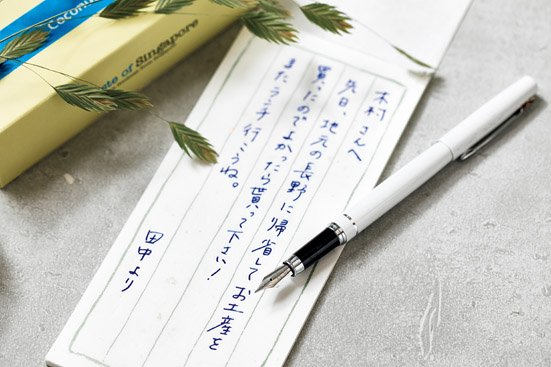 木村さんへ
先日、地元の長野に帰省してお土産を
買ったのでよかったら貰って下さい!
またランチ行こうね。
田中より
Coconut
te of Singapore